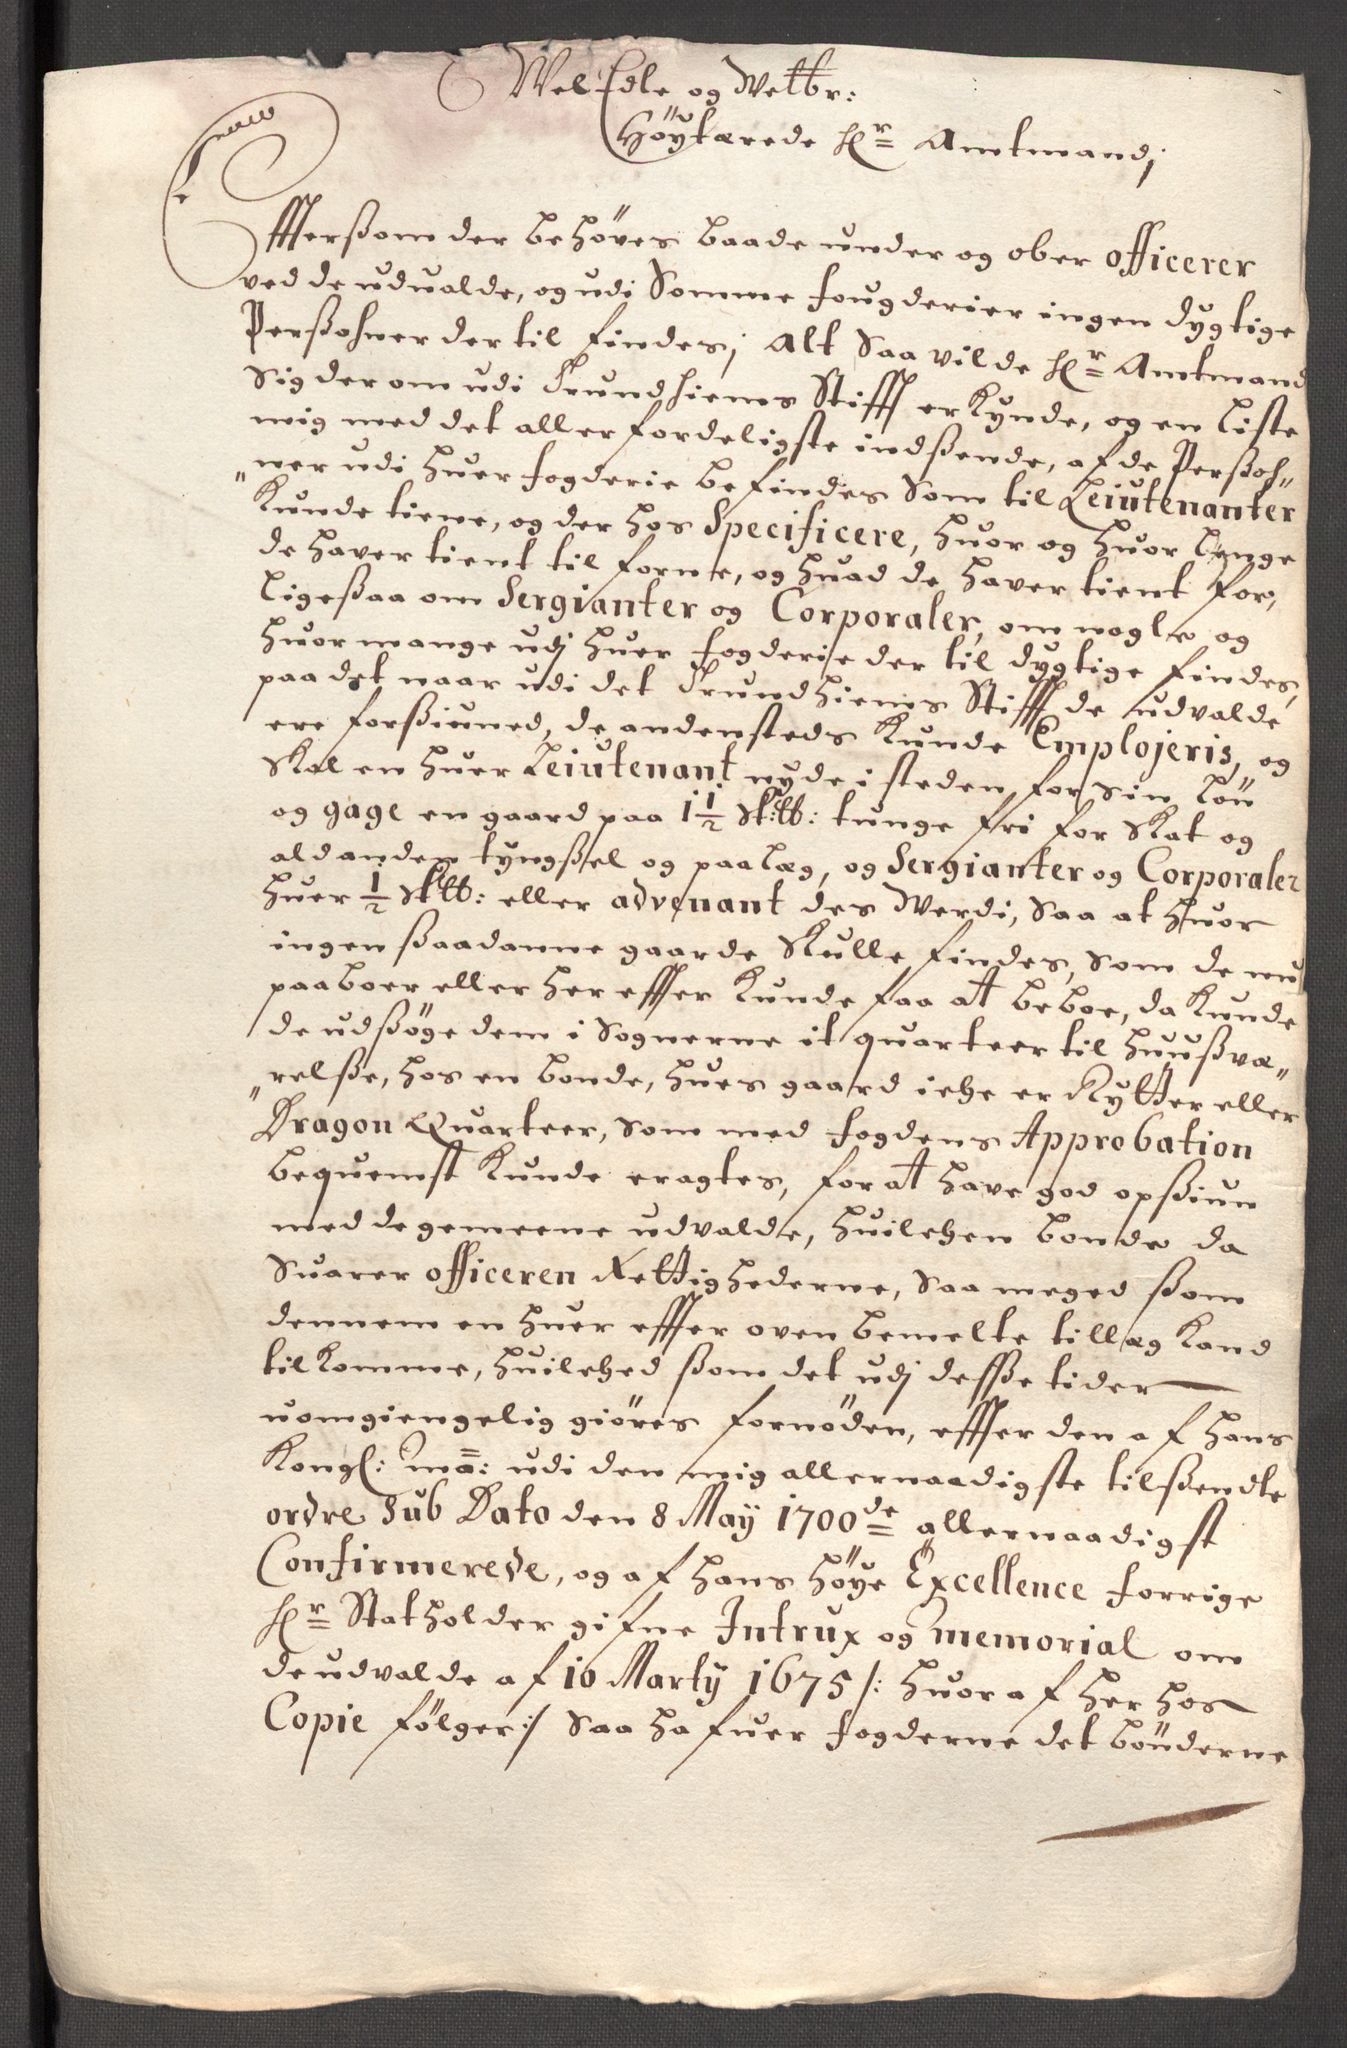 Wel Edle og Welbr:
Höytærede Hr Amtmand;
Effterßom der behöves baade under og ober officerer
ved de udualde, og udi Somme fougderier ingen dygtige
Perßohner der til findes; Alt Saa vilde Hr Amtmand
Sig der om udi Trundhiems Stifft erkynde, og en Liste
mig med det aller fordeligste indßende, af de Perßoh„
„ner udi huer fogderie befindes Som til Leiutenanter
Kunde tiene, og der hos Specificere, huor og huor lenge
de haver tient til forne, og huad de haver tient for,
Ligeßaa om Sergianter og Corporaler, om nogle og
huor mange udj huer fogderie der til dygtige findes,
paa det naar udi det Trundhiems Stifft de udvalde
ere forßiuned, de andensteds Kunde Emplojeris, og
Skal en huer Leiutenant nyde i steden for sin Løn
og gage en gaard paa 1½ Sk:tt: tunge fri for Skat og
ald anden tyngßel og paalæg, og Sergianter og Corporaler
huer ½ Sktt: eller advenant des Werdi, Saa at huor
ingen ßaadanne gaarde Skulle findes, Som de nu
paaboer eller her effter Kunde faa at beboe, da Kunde
de udßøge dem i Sognerne it quarteer til huußvæ„
„relße, hos en bonde, hues gaard iche er Rytter eller
Dragon Quarteer, Som med fogdens Approbation
bequemst Kunde eragtes, for at have god opßiun
med de gemeene udvalde, huilchen bonde da
Suarer officeren Rettighederne, Saa meged ßom
dennem en huer effter oven bemelte tillæg Kand
til Komme, huilched ßom det udj desße tider
uomgiengelig giöres fornöden, effter den af hans
Kongl: Ma: udi den mig allernaadigste tilßendte
ordre Sub Dato den 8 May 1700de allernaadigst
Confirmerede, og af hans höye Excellence forrige
Hr Statholder gifne Intrux og Memorial om
de udvalde af 10 Marty 1675 /: huor af her hos
Copie fölger :/ Saa hafuer fogderne det bönderne